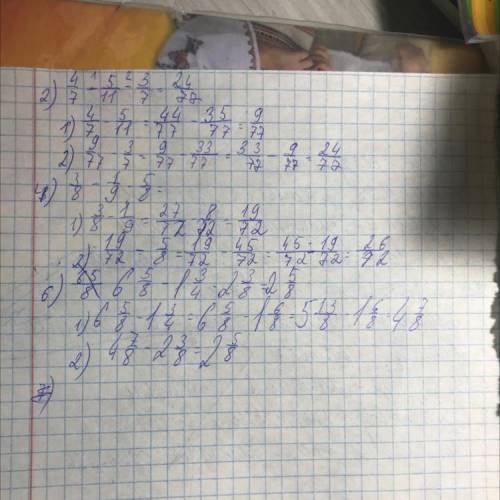 2) 4/7 - 5/11 - 3/7 = 24/77
1) 4/7 - 5/11 = 44/77 - 35/77 = 9/77
2) 9/77 - 3/7 = 9/77 - 33/77 = 33/77 - 9/77 = 24/77
4) 3/8 - 1/9 - 5/8 =
1) 3/8 - 1/9 = 27/72 - 8/72 = 19/72
2) 19/72 - 5/8 = 19/72 - 45/72 = 45/72 - 19/72 = 26/72
6) 6 5/8 - 1 3/4 - 2 3/8 = 2 5/8
1) 6 5/8 - 1 3/4 = 6 5/8 - 1 6/8 = 5 13/8 - 1 6/8 = 4 7/8
2) 4 7/8 - 2 3/8 = 2 5/8